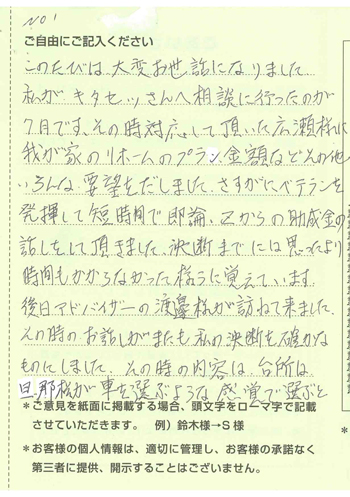 No 1
ご自由にご記入ください
このたびは、大変お世話になりました
私がキタセツさんへ相談に行ったのが
7月です、その時対応して頂いた広瀬様に
我が家のリホームのプラン、金額などその他
いろんな要望をだしました。さすがにベテランを
発揮して短時間で即論、Zからの助成金の
話しをして頂きました。決断までには思ったより
時間もかからなかった様うに覚えています。
後日アドバイザーの渡邉様が訪ねて来ました。
その時のお話しがまたも私の決断を確かな
ものにしました。その時の内容は、台所は
旦那様が車を選ぶような感覚で選ぶと
*ご意見を紙面に掲載する場合、頭文字をローマ字で記載
させていただきます。 例）鈴木様→S様
*お客様の個人情報は、適切に管理し、お客様の承諾なく
第三者に提供、開示することはございません。